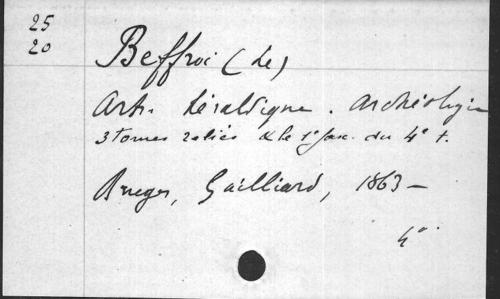 25
20
Beffroi (Le)
Arts. héraldique. archéologie
3 tomes reliés & le 1r fasc. du 4e t.
Bruges, Gailliard, 1863 -
4°.